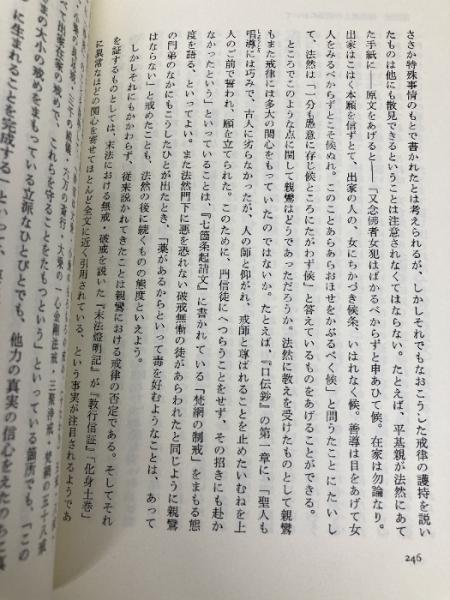 ささか特殊事情のもとで書かれたとは考えられるが、しかしそれでもなおこうした戒律の護持を説い
たものは他にも散見できるということは注意されなくてはならない。たとえば、平基親が法然にあて
た手紙に――原文をあげると――「又念佛者女犯はばかるべからずと申あひて候。在家は勿論なり。
出家はこはく本願を信ずとて、出家の人の、女にちかづき候条、いはれなく候。善導は目をあげて女
人をみるべからずとこそ候ぬれ。このことあらあらおほせをかぶるべく候」と問うたことにたいし
て、法然は「一分も愚意に存じ候ところにたがわず候」と答えているものをあげることができる。
ところでこのような点に関して親鸞はどうであっただろうか。法然に教えを受けたものとして親鸞
もまた戒律には多大の関心をもっていたのではないか。たとえば、『口伝鈔』の第一章に、「聖人も
唱導には巧みで、古人に劣らなかったが、人の師と仰がれ、戒師と尊ばれることを止めたいむねを上
人のご前で誓われ、願を立てられた。このために、門信徒にへつらうことをせず、その招きにも赴か
なかったという」といっていることは、『七箇条起請文』に書かれている「梵網の制戒」をまもる態
度を語る、といってよい。また法然門下に悪を恐れない破戒無慚の徒があらわれたと同じように親鸞
の門弟のなかにもこうしたひとが出たとき、「薬があるからといって毒を好むようなことは、あって
はならない」と戒めたことも、法然の後に続くものの態度といえよう。
しかしそれにもかかわらず、従来説かれてきたことは親鸞における戒律の否定である。そしてそれ
を証するものとしては、末法における無戒・破戒を説いた『末法燈明記』が『教行信証』「化身土巻」
に異常なほどの関心を寄せてほとんど全文に近く引用されている、という事実が注目されるようであ
246
れらを守ることをたもつという」といっている箇所でも、「この
に生まれることを完成する」といって
の大小の戒めをまもっている立派なひとびとでも、他力の真実の信心をえたのちに真